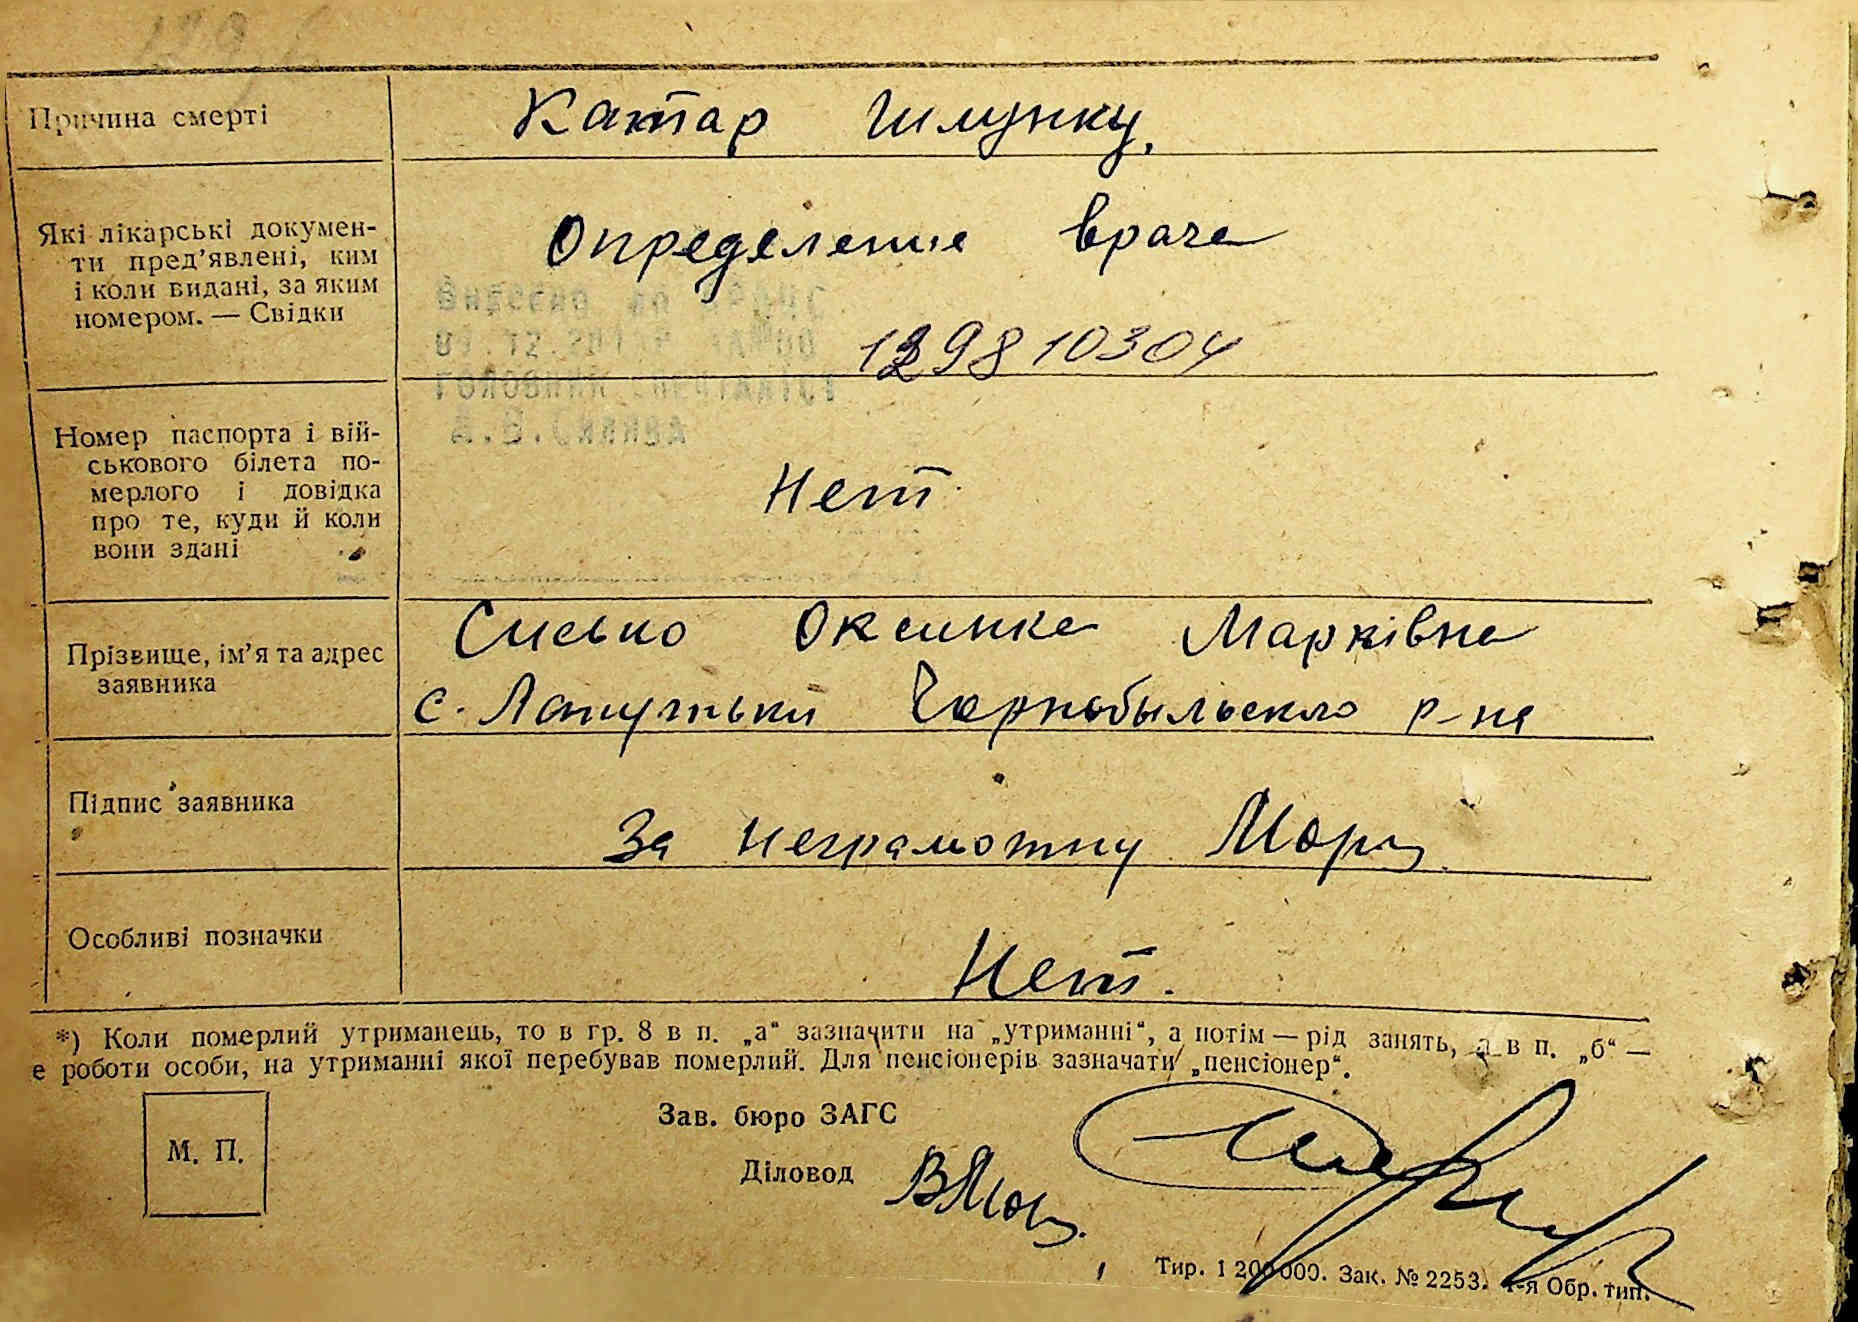 Причина смерті
Катар шлунку.
Які лікарські докумен-
ти пред'явлені, ким
і коли видані, за яким
номером. — Свідки
Определение врача
Внесено до ДРАЦС
головний спеціаліст
А.В.
Номер паспорта і вій-
ськового білета по-
мерлого і довідка
про те, куди й коли
вони здані
Нет.
Прізвище, ім'я та адрес
заявника
Оксинка Марківна
с. Чорнобыльского р-на
Підпис заявника
За неграмотну
Особливі позначки
Нет.
*) Коли померлий утриманець, то в гр. 8 в п. „а“ зазначити на „утриманні“, а потім — рід занять, а в п. „б“ —
е роботи особи, на утриманні якої перебував померлий. Для пенсіонерів зазначати „пенсіонер“.
М. П.
Зав. бюро ЗАГС
Діловод
Тир. 1 200 000. Зак. № 2253. 1-я Обр. тип.